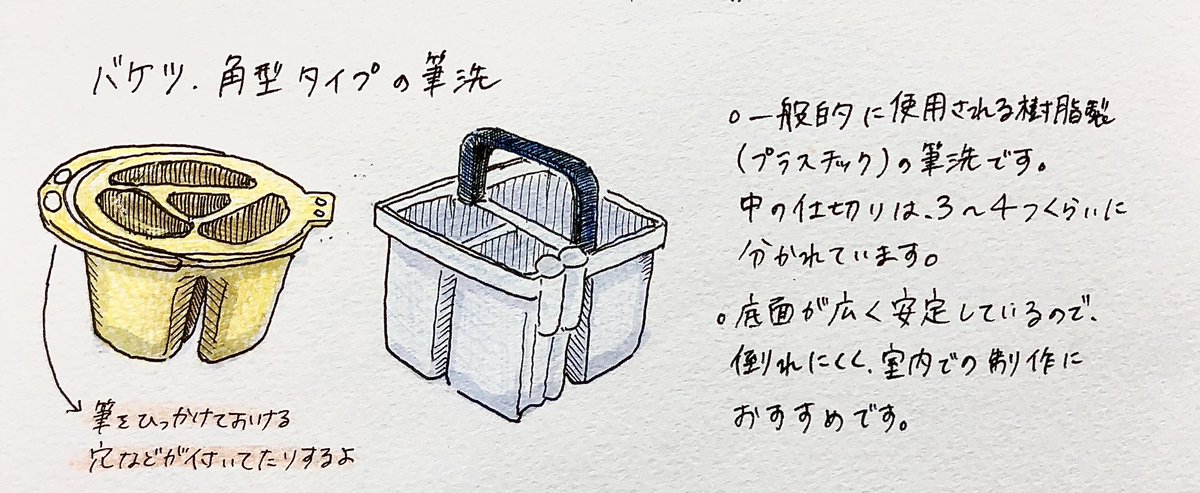 バケツ.角型タイプの筆洗
筆をひっかけておける
穴などが付いてたりするよ
○一般的に使用される樹脂製
(プラスチック)の筆洗です。
中の仕切りは、3〜4つくらいに
分かれています。
○底面が広く安定しているので、
倒れにくく、室内での制作に
おすすめです。